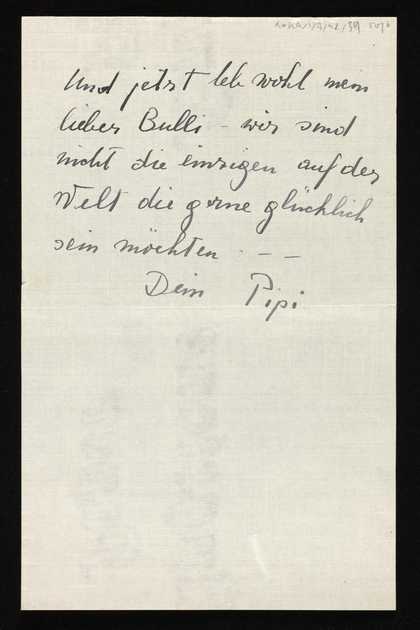 Und jetzt leb wohl mein
lieber Bulli – wir sind
nicht die einzigen auf der
Welt die gerne glücklich
sein möchten . – –
Dein Pipi